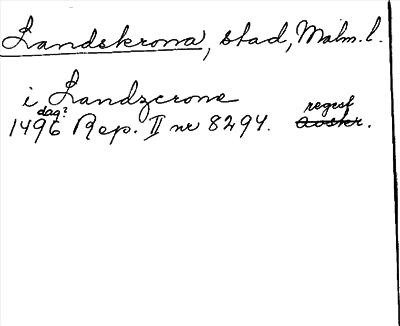 Landskrona, stad, Malm. l.
i Landzcrone
dag? regest
1496 Rep. II nr 8294. avskr.